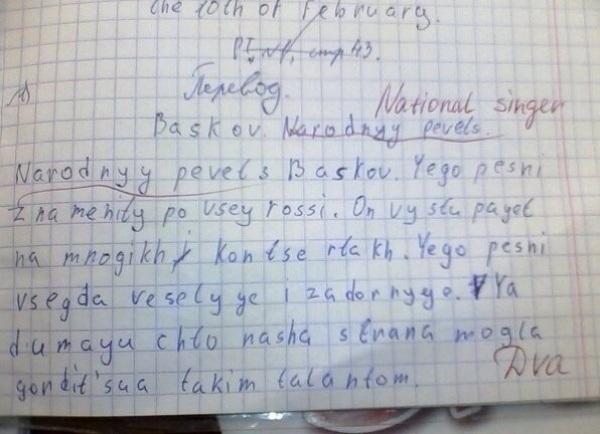 the 10th of February.
Перевод.
National singer
Baskov. Narodnyy pevets.
Narodnyy pevets Baskov. Yego pesni
znamenity po vsey rossi. On vystupayet
na mnogikh kontsertakh. Yego pesni
vsegda veselyye i zadornyye. Ya
dumayu chto nasha strana mogla
gordit'sua takim talantom.
Dva